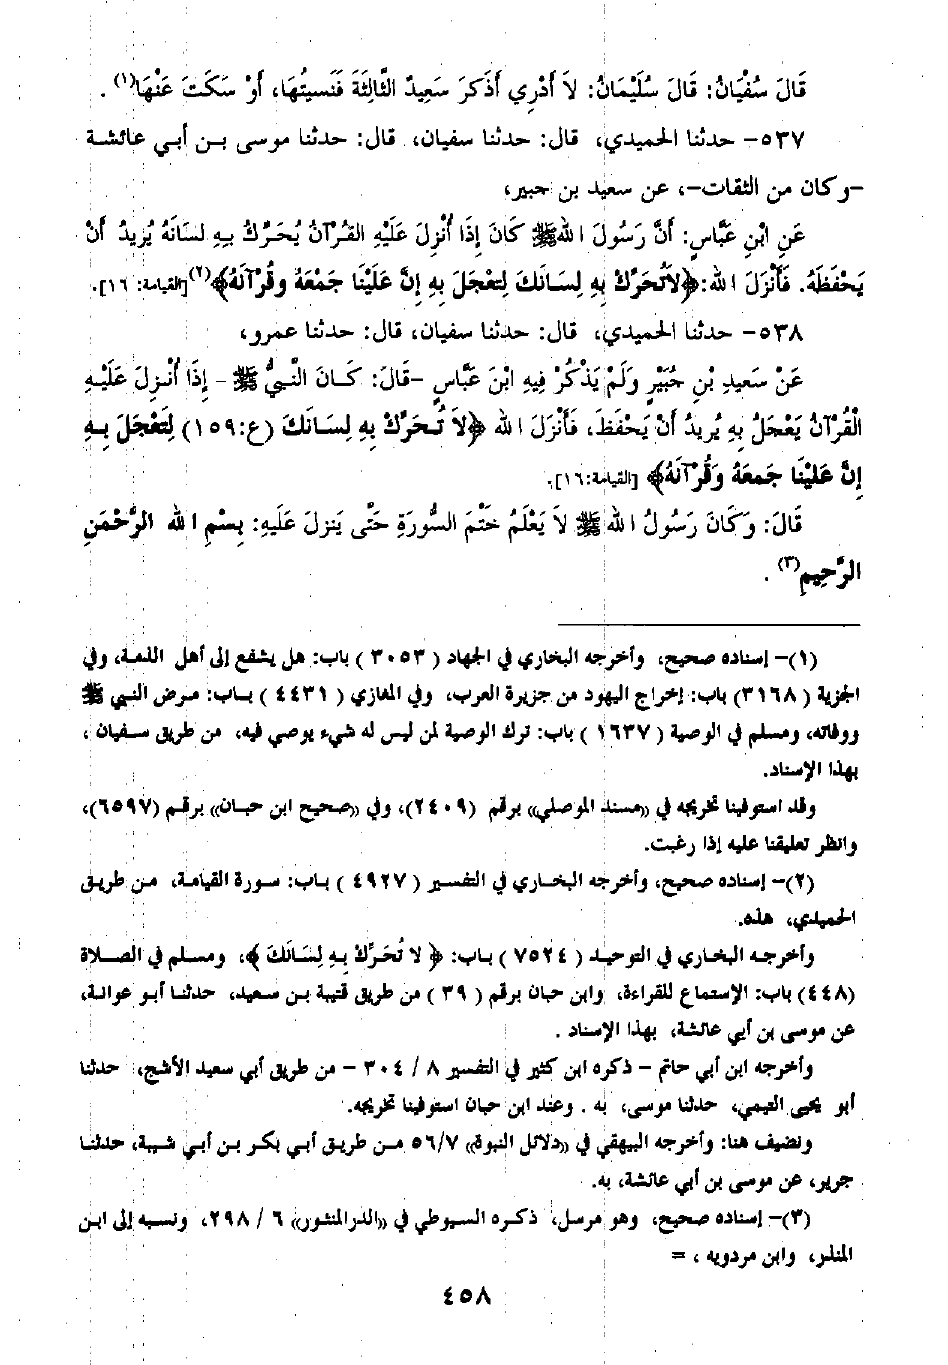 قَالَ سُفْيَانُ: قَالَ سُلَيْمَانُ: لاَ أَدْرِي أَذَكَرَ سَعِيدٌ الثَّالِثَةَ فَنَسِيتُهَا، أَوْ سَكَتَ عَنْهَا(١) .
٥٣٧- حدثنا الحميدي، قال: حدثنا سفيان، قال: حدثنا موسى بـن أبـي عائشـة
-وكان من الثقات-، عن سعيد بن جبير،
عَنِ ابْنِ عَبَّاسٍ: أَنَّ رَسُولَ اللهِ ﷺ كَانَ إِذَا أُنْزِلَ عَلَيْهِ القُرْآنُ يُحَرِّكُ بِـهِ لِسَانَهُ يُرِيدُ أَنْ
يَحْفَظَهُ. فَأَنْزَلَ اللهُ: ﴿لاَتُحَرِّكْ بِهِ لِسَانَكَ لِتَعْجَلَ بِهِ إِنَّ عَلَيْنَا جَمْعَهُ وَقُرْآنَهُ﴾(٢) [القيامة: ١٦].
٥٣٨- حدثنا الحميدي، قال: حدثنا سفيان، قال: حدثنا عمرو،
عَنْ سَعِيدِ بْنِ جُبَيْرٍ وَلَمْ يَذْكُرْ فِيهِ ابْنَ عَبَّاسٍ -قَالَ: كَـانَ النَّبِـيُّ ﷺ - إِذَا أُنْـزِلَ عَلَيْـهِ
الْقُرْآنُ يَعْجَلُ بِهِ يُرِيدُ أَنْ يَحْفَظَ، فَأَنْزَلَ اللهُ ﴿لاَ تُـحَرِّكْ بِهِ لِسَـانَكَ (ع:١٥٩) لِتَعْجَلَ بِـهِ
إِنَّ عَلَيْنَا جَمْعَهُ وَقُرْآنَهُ﴾ [القيامة:١٦].
قَالَ: وَكَانَ رَسُولُ اللهِ ﷺ لاَ يَعْلَمُ خَتْمَ السُّورَةِ حَتَّى يَنزِلَ عَلَيهِ: بِسْمِ اللهِ الرَّحْمَنِ
الرَّحِيمِ(٣) .
(١)- إسناده صحيح، وأخرجه البخاري في الجهاد ( ٣٠٥٣ ) باب: هل يشفع إلى أهل الذمـة، وفي
الجزية ( ٣١٦٨) باب: إخراج اليهود من جزيرة العرب، وفي المغازي ( ٤٤٣١ ) بـاب: مـرض النبي ﷺ
ووفاته، ومسلم في الوصية ( ١٦٣٧ ) باب: ترك الوصية لمن ليس له شيء يوصي فيه، من طريق سـفيان ،
بهذا الإسناد.
وقد استوفينا تخريجه في «مسند الموصلي» برقم (٢٤٠٩)، وفي «صحيح ابن حبان» برقـم (٦٥٩٧)،
وانظر تعليقنا عليه إذا رغبت.
(٢)- إسناده صحيح، وأخرجه البخـاري في التفسير ( ٤٩٢٧ ) بـاب: سـورة القيامـة، مـن طريـق
الحميدي، هذه.
وأخرجـه البخـاري في التوحيـد ( ٧٥٢٤ ) بـاب: ﴿ لا تُحَرِّكْ بِـهِ لِسَانَكَ ﴾، ومسـلم في الصـلاة
(٤٤٨) باب: الإستماع للقراءة، وابن حبان برقم ( ٣٩ ) من طريق قتيبة بـن سعيد، حدثنـا أبـو عوانـة،
عن موسى بن أبي عائشة، بهذا الإسناد .
وأخرجه ابن أبي حاتم - ذكره ابن كثير في التفسير ٨ / ٣٠٤ - من طريق أبي سعيد الأشج، حدثنا
أبو يحيى التيمي، حدثنا موسى، به . وعند ابن حبان استوفينا تخريجه.
ونضيف هنا: وأخرجه البيهقي في «دلائل النبوة» ٥٦/٧ مـن طريق أبـي بكـر بـن أبـي شيبة، حدثنـا
جرير، عن موسى بن أبي عائشة، به.
(٣)- إسناده صحيح، وهو مرسل، ذكـره السيوطي في «الدرالمنثور» ٦ / ٢٩٨، ونسبه إلى ابـن
المنذر، وابن مردويه ، =
٤٥٨